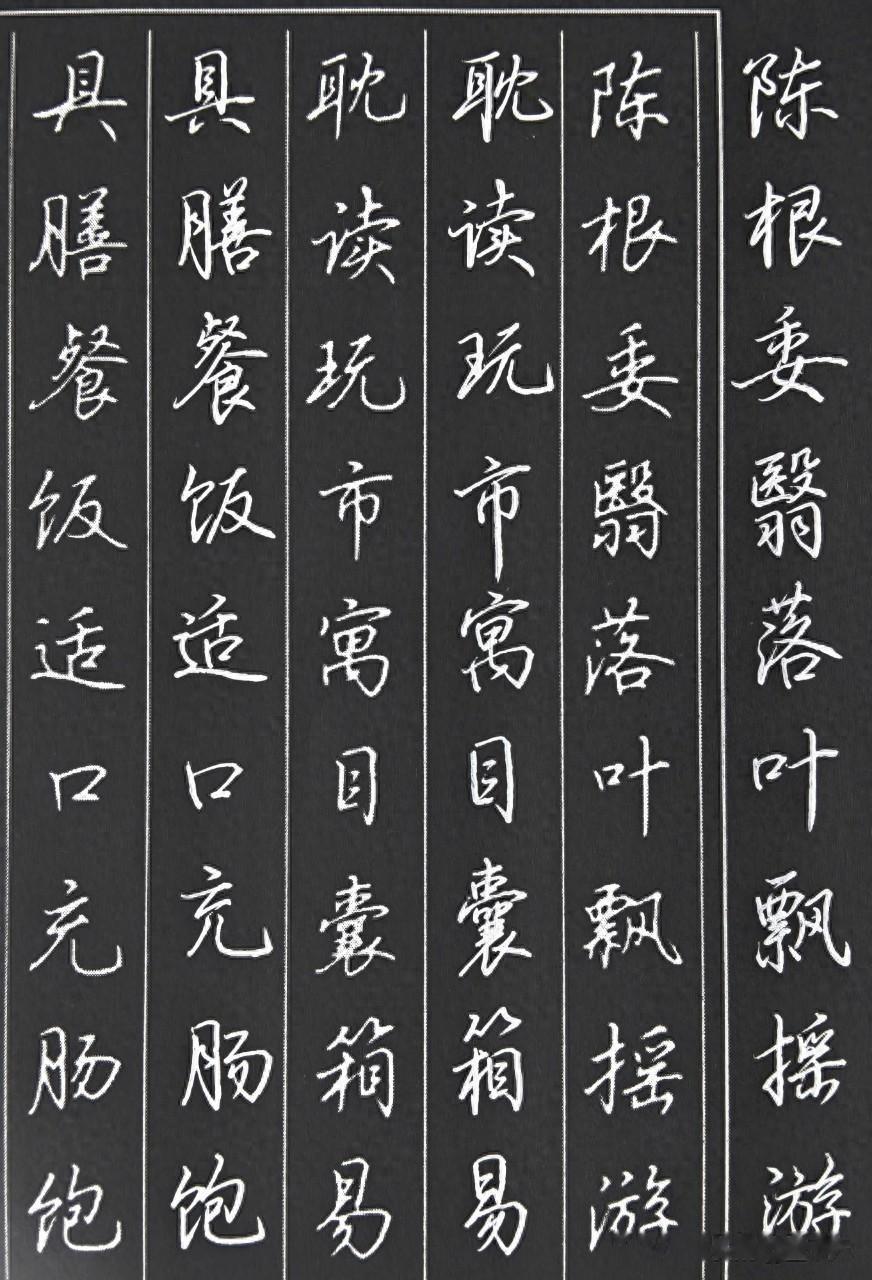 陈根委翳落叶飘摇游
陈根委翳落叶飘摇游
耽读玩市寓目囊箱易
耽读玩市寓目囊箱易
具膳餐饭适口充肠饱
具膳餐饭适口充肠饱